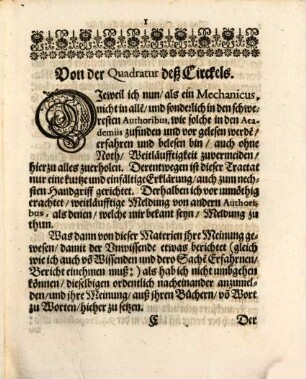 1
Von der Quadratur deß Circkels.
DJeweil ich nun/ als ein Mechanicus,
nicht in allē/ und sonderlich in den schwe-
resten Authoribus, wie solche in den Aca-
demiis zufinden und vor gelesen werdē/
erfahren und belesen bin/ auch ohne
Noth/ Weitläufftigkeit zuvermeiden/
hierzu alles zuerholen. Derentwegen ist dieser Tractat
nur eine kurtze und einfältige Erklärung/ auch zum nech-
sten Handgriff gerichtet. Derhalben ich vor unnöthig
erachtet/ weitläufftige Meldung von andern Authori-
bus, als denen/ welche mir bekant seyn/ Meldung zu
thun.
Was dann von dieser Materien ihre Meinung ge-
wesen/ damit der Unwissende etwas berichtet (gleich
wie ich auch võ Wissenden und dero Sachē Erfahrnen/
Bericht einehmen muß:) als hab ich nicht umbgehen
können/ dieselbigen ordentlich nacheinander anzumel-
den/ und ihre Meinung/ auß ihren Büchern/ võ Wort
zu Worten/ hicher zu setzen.
E Der